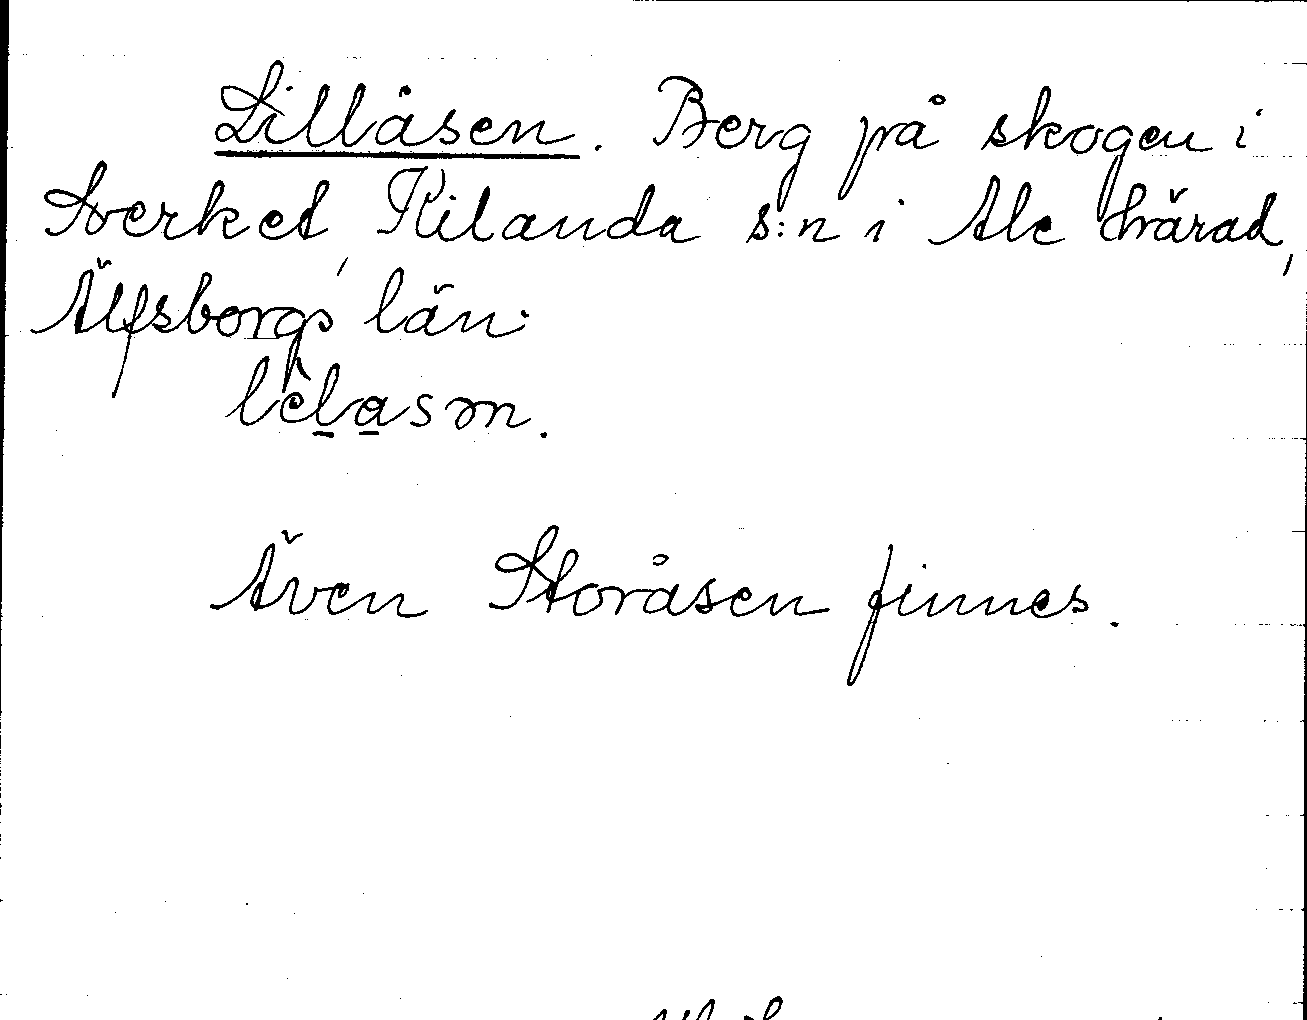 Lillåsen. Berg på skogen i
Sverket, Kilanda s:n i Ale härad,
Älfsborgs län.
lèl̠a̠sm.
Även Storåsen finnes.